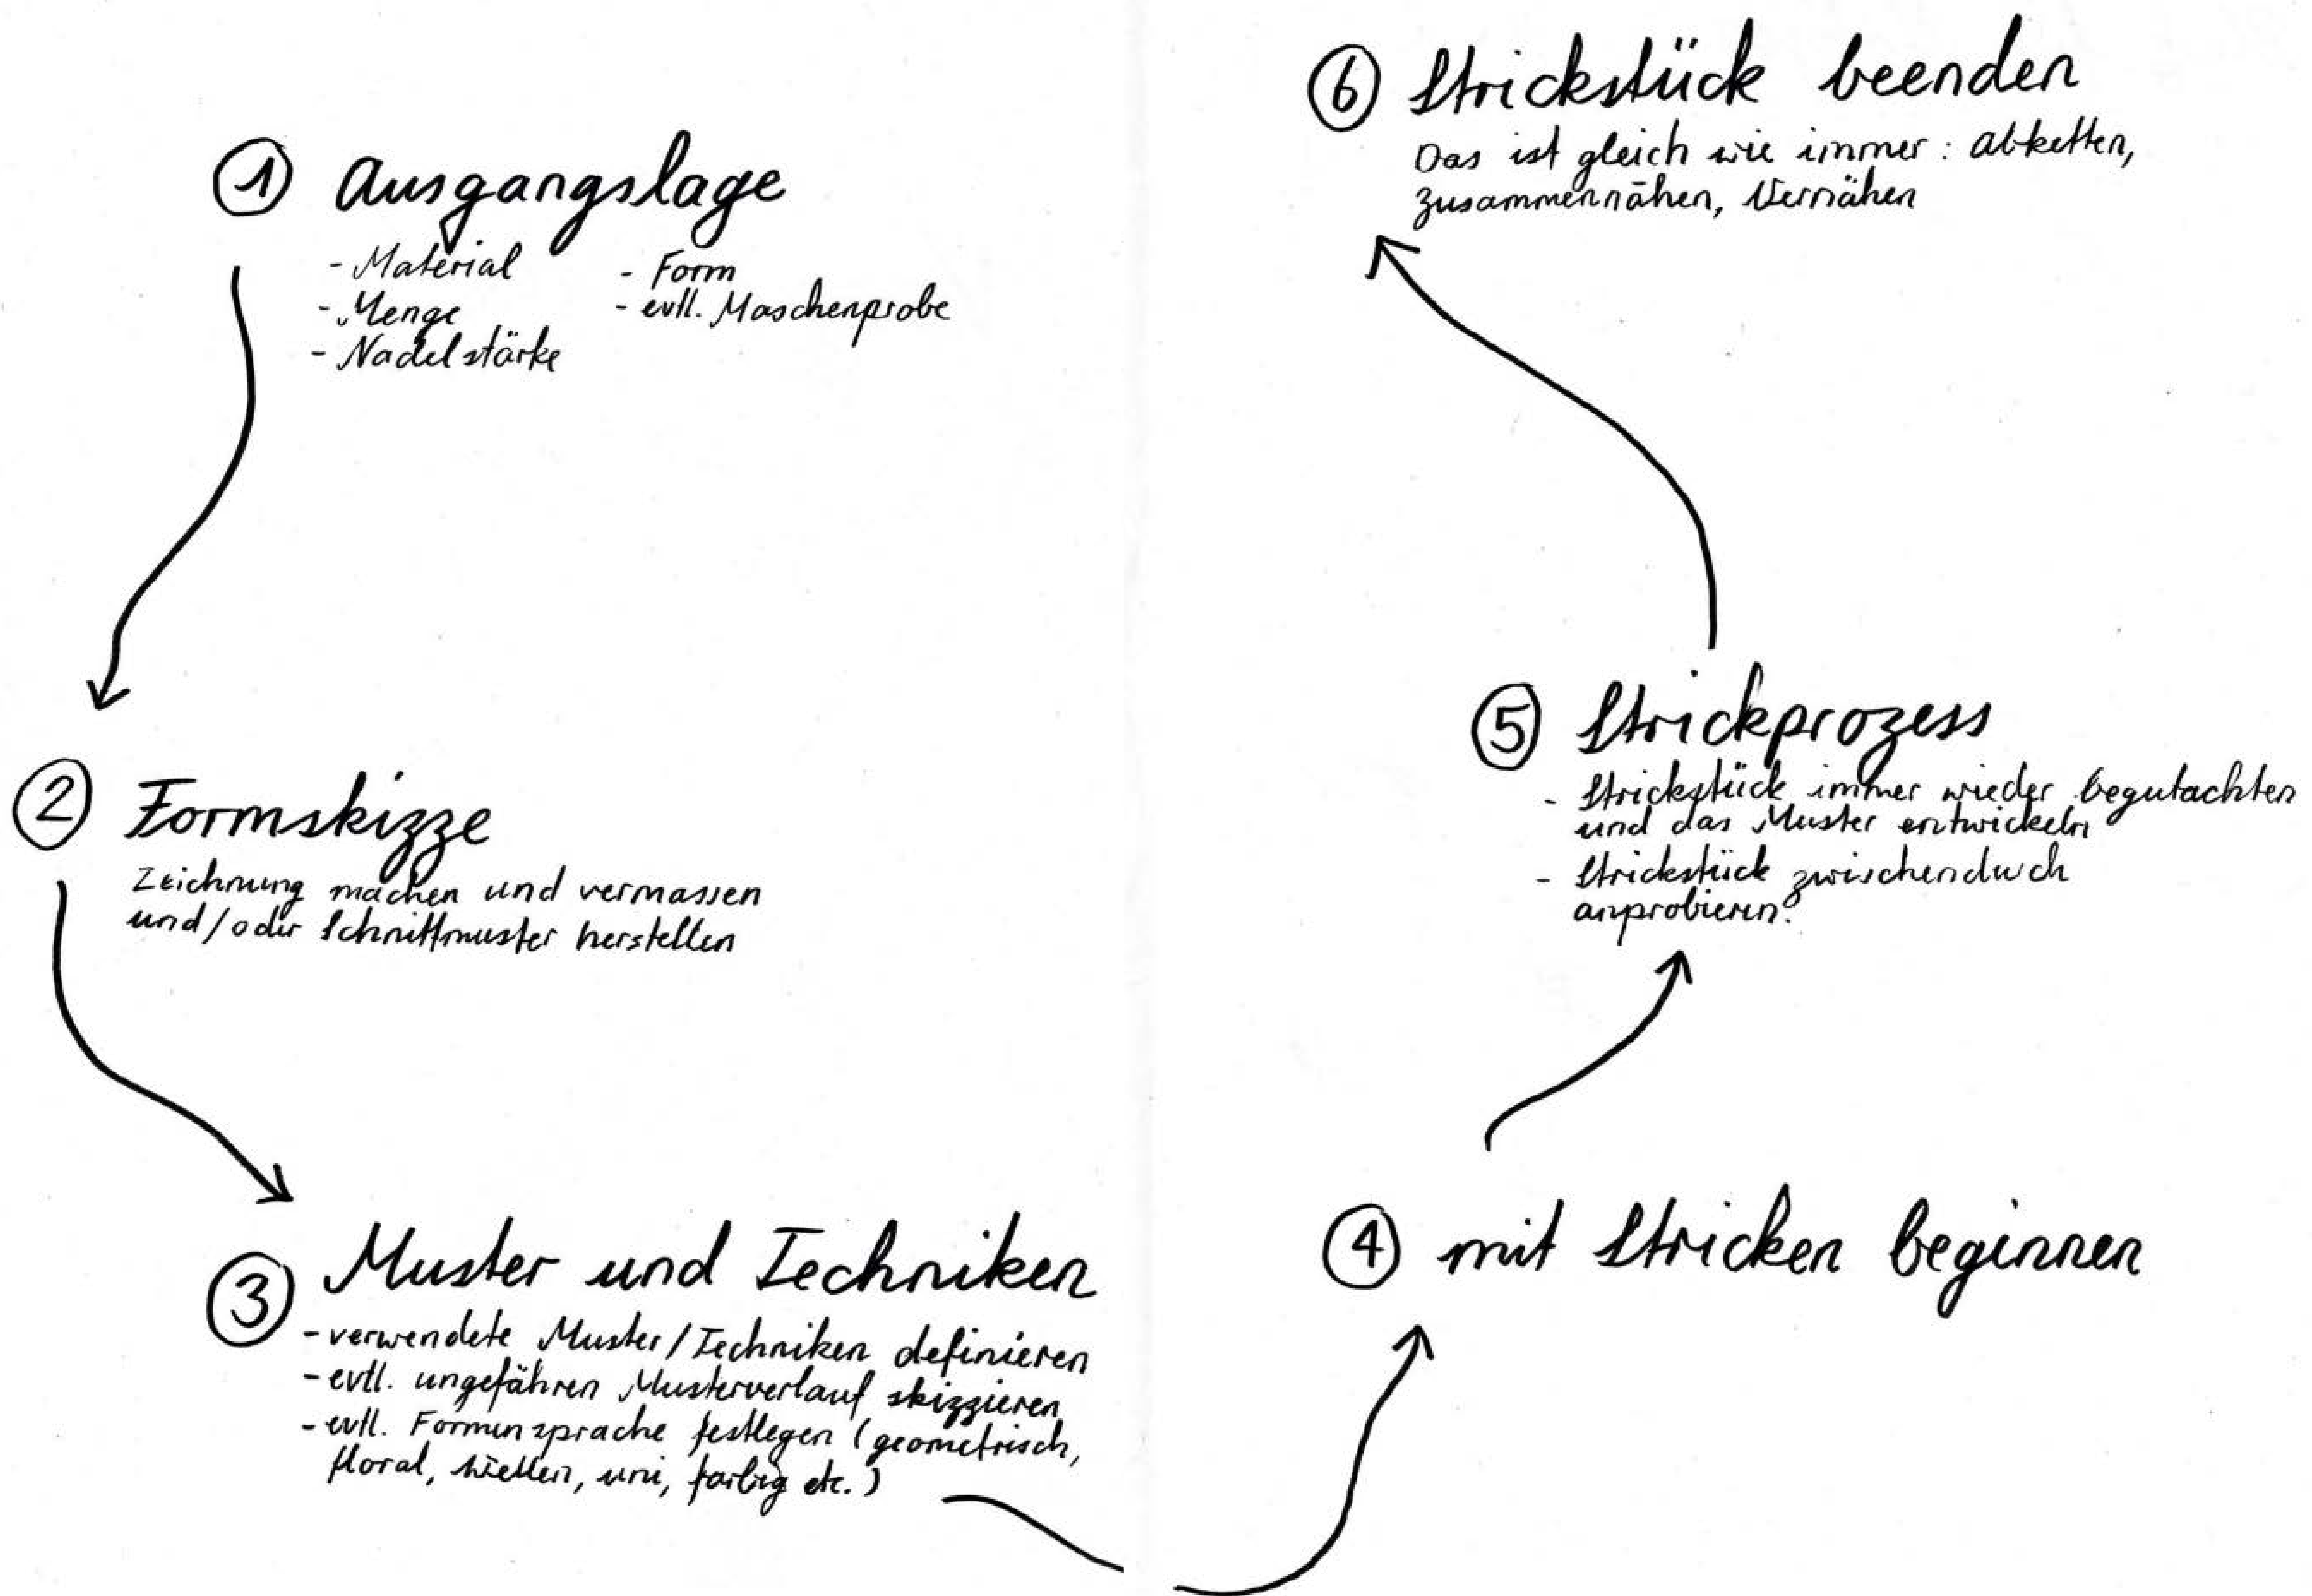 ① Ausgangslage
- Material
- Menge
- Nadelstärke
- Form
- evtl. Maschenprobe
② Formskizze
Zeichnung machen und vermassen
und/oder Schnittmuster herstellen
③ Muster und Techniken
- verwendete Muster/Techniken definieren
- evtl. ungefähren Musterverlauf skizzieren
- evtl. Formensprache festlegen (geometrisch,
floral, Wellen, uni, farbig etc.)
④ mit Stricken beginnen
⑤ Strickprozess
- Strickstück immer wieder begutachten
und das Muster entwickeln
- Strickstück zwischenduch
anprobieren?
⑥ Strickstück beenden
Das ist gleich wie immer: Abketten,
Zusammennähen, Vernähen